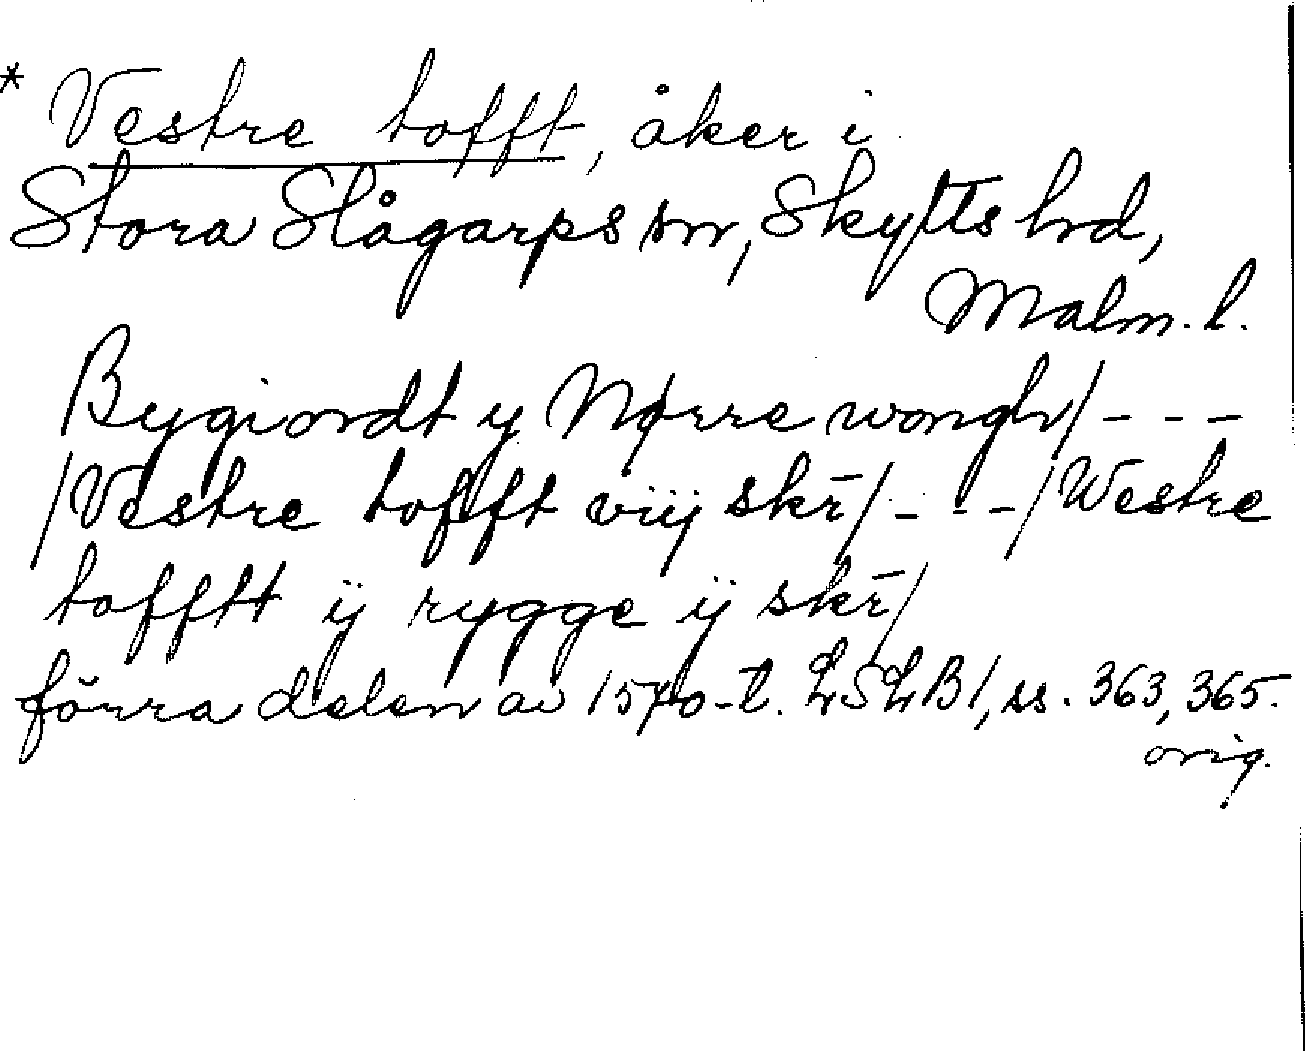 * Vestre tofft, åker i
Stora Slågarps sn, Skytts hd,
Malm. l.
Bygiordt y Nørre wongh/ - - -
/Vestre tofft viij skr̄/ - - - /Westre
tofftt ÿ rygge ÿ skr̄/
förra delen av 1570-t. LSLB1, ss. 363, 365.
orig.